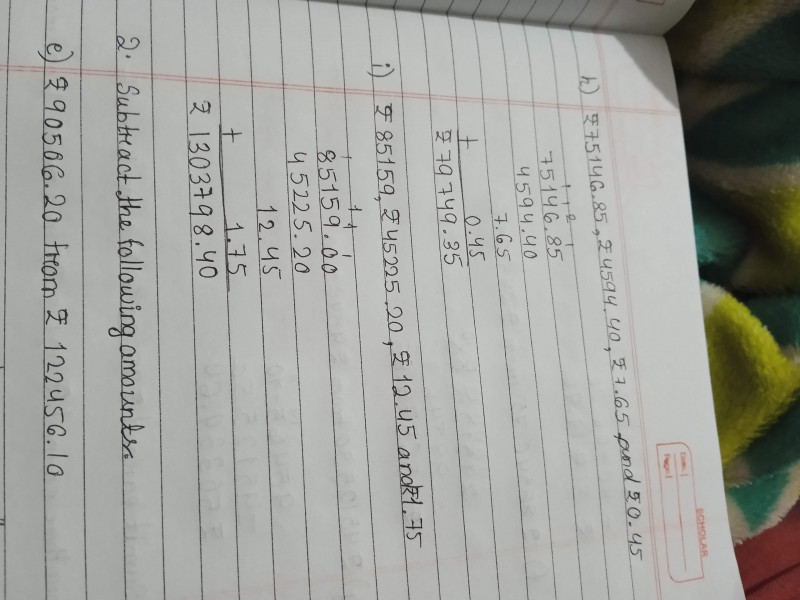 SCHOLAR
Date:
Page:
h) ₹75146.85, ₹4594.40, ₹7.65 and ₹0.45
1 1 2 1
75146.85
4594.40
7.65
+ 0.45
₹79749.35
i) ₹85159, ₹45225.20, ₹12.45 and ₹1.75
1 1 1 1
85159.00
45225.20
12.45
+ 1.75
₹1303798.40
2. Subtract the following amounts.
e) ₹90566.20 from ₹122456.10